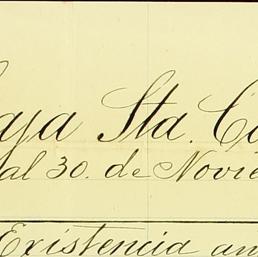 Caja Sta. Ca
al 30. de Novie
Existencia an